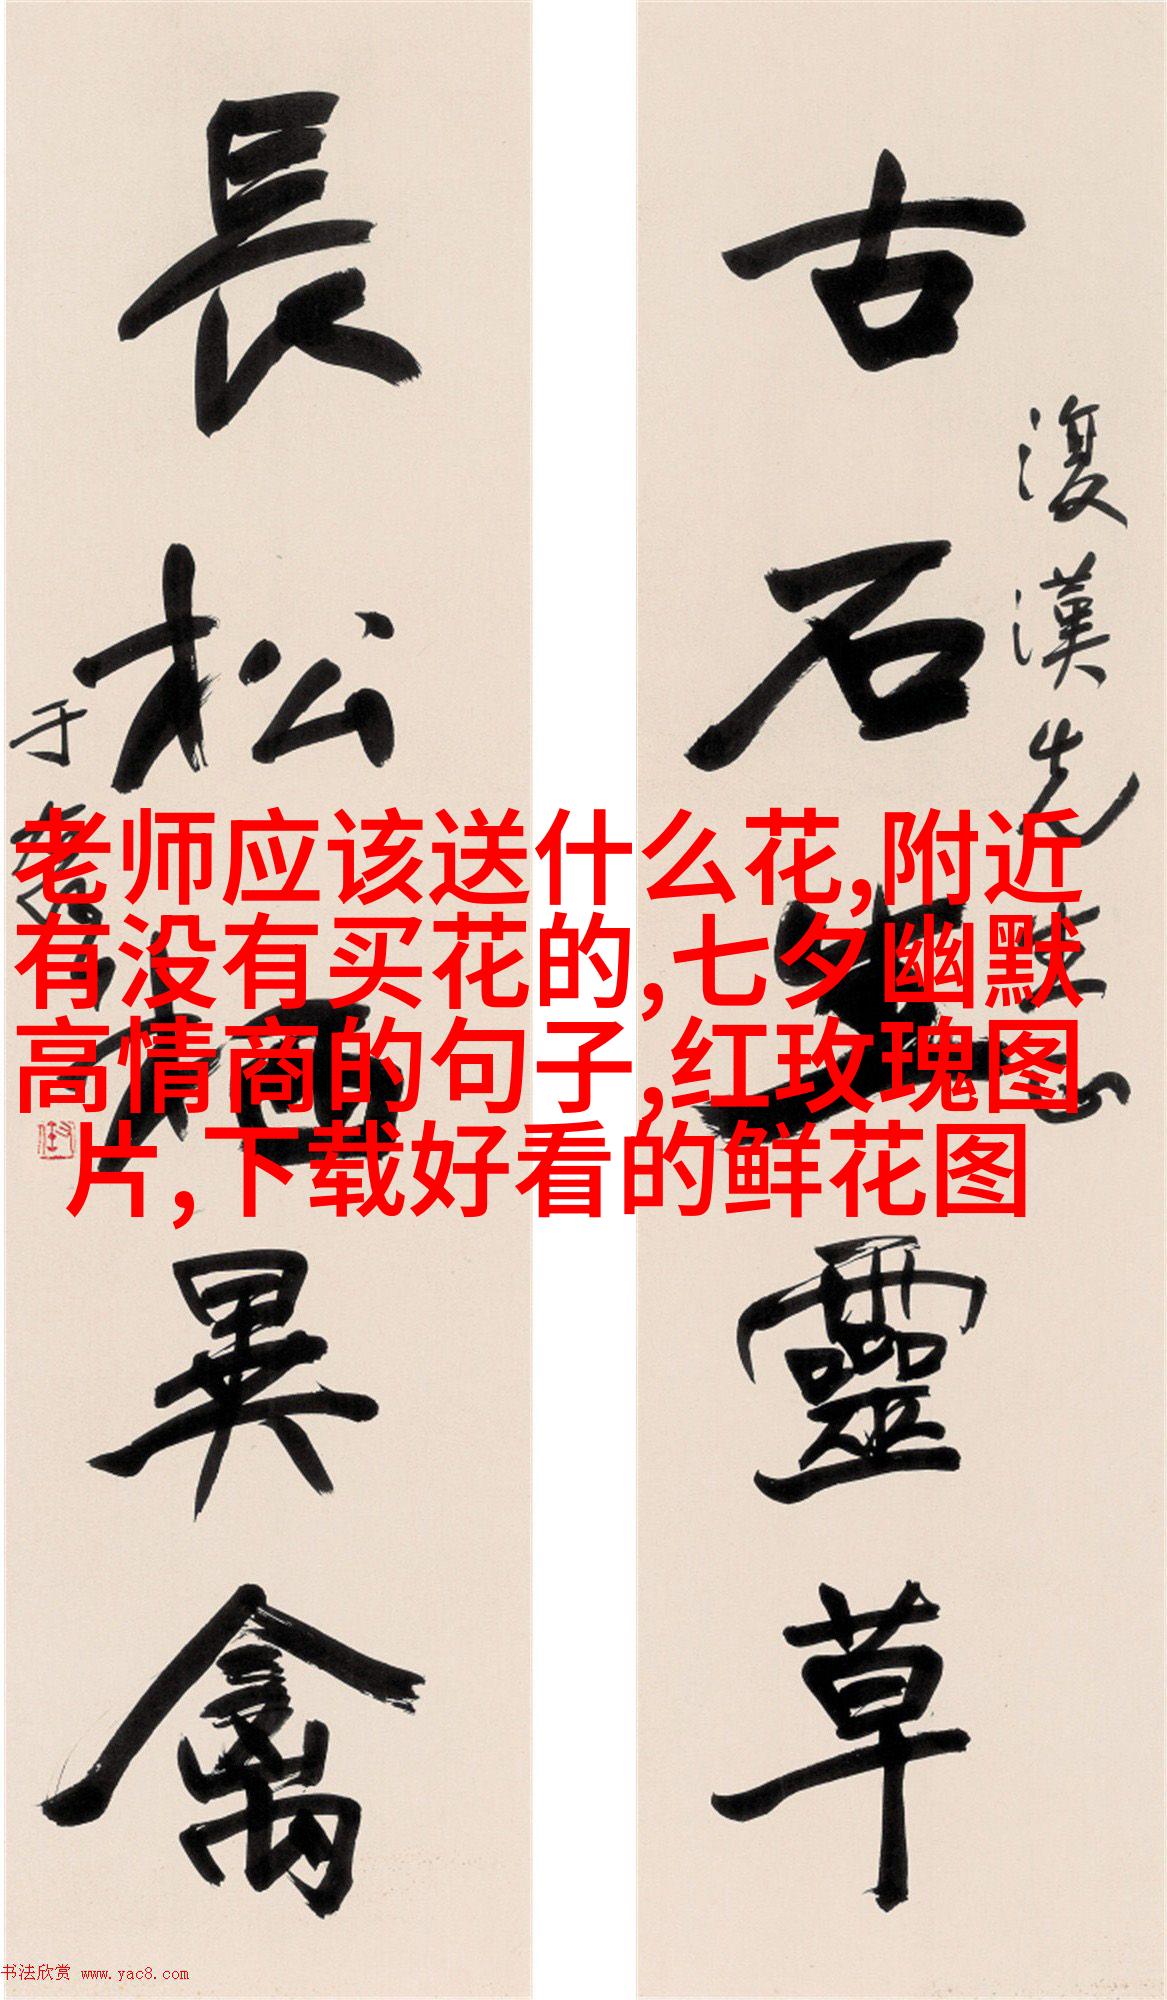 古石生靈草
復漢先生正
長松栖異禽
于右任
老师应该送什么花,附近
有没有买花的,七夕幽默
高情商的句子,红玫瑰图
片,下载好看的鲜花图
书法欣赏 www.yac8.com